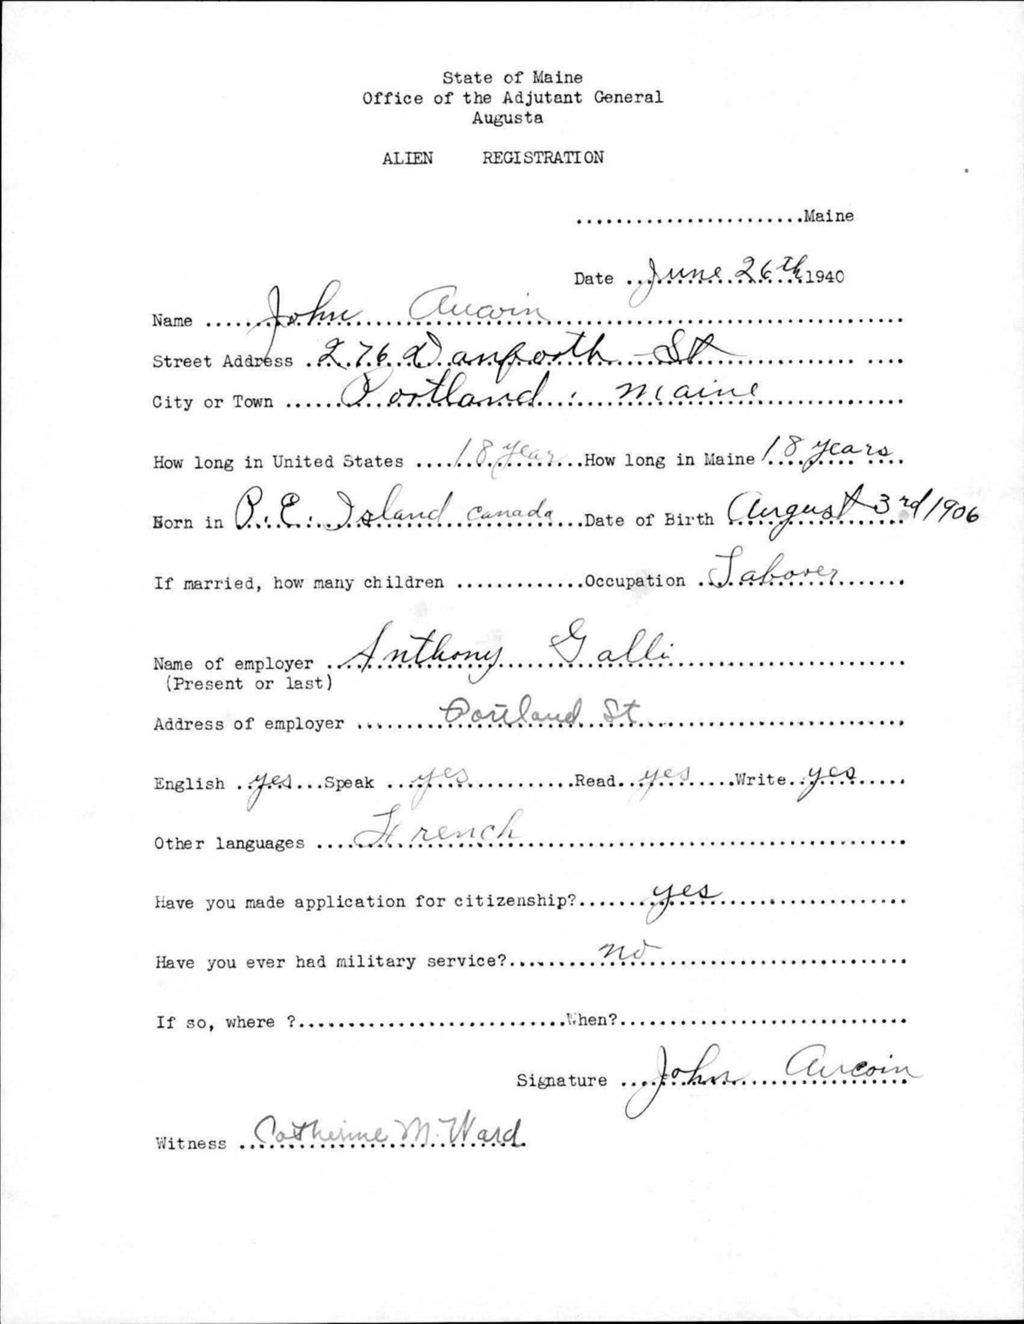 State of Maine
Office of the Adjutant General
Augusta
ALIEN REGISTRATION
.......................Maine
Date ..June 26th 1940
Name ......John Aucoin......
Street Address .276 Danforth St......
City or Town ......Portland, Maine......
How long in United States ....18 year...How long in Maine 18 years..
Born in P. E. Island Canada...Date of Birth August 3rd/1906
If married, how many children .............Occupation .Laborer.......
Name of employer ..Anthony Galli......
(Present or last)
Address of employer ........Portland St......
English .yes...Speak ..yes...........Read..yes.....Write..yes.....
Other languages ....French......
Have you made application for citizenship?.......yes......
Have you ever had military service?.........no......
If so, where ?...........................When?.............................
Signature ...John Aucoin
Witness .Catherine M. Ward.